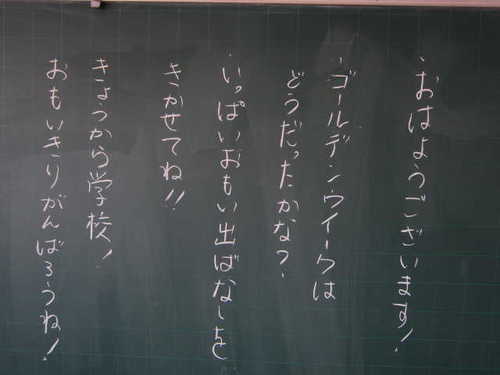 ・おはようございます!
・ゴールデンウイークは
どうだったかな?
・いっぱいおもい出ばなしを
きかせてね!!
きょうから学校!
おもいきりがんばろうね!